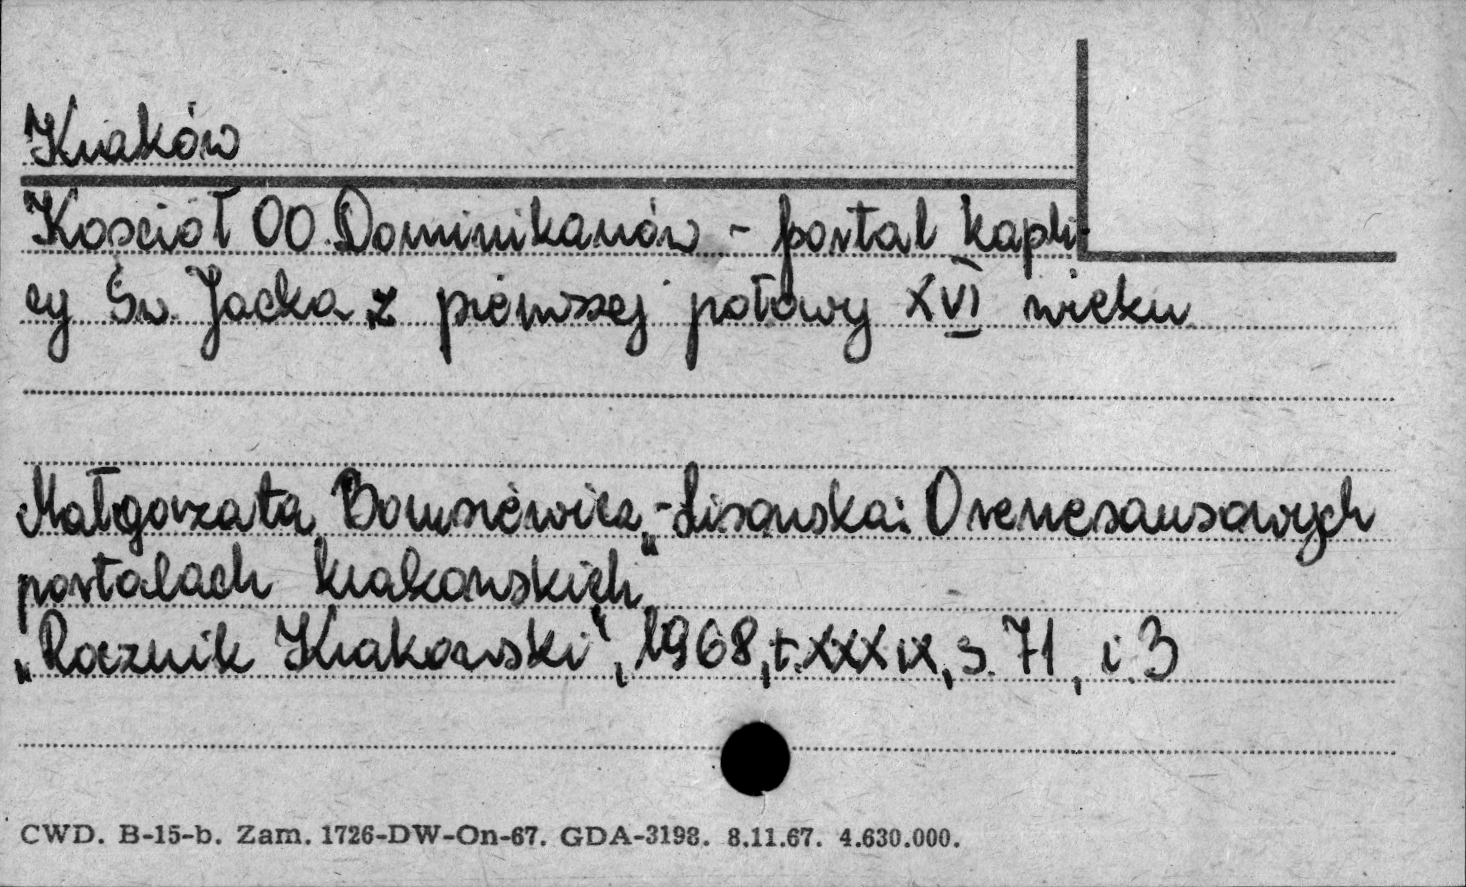 Kraków
Kościół OO. Dominikanów - portal kapli
cy Św. Jacka z pierwszej połowy XVI wieku
Małgorzata Borusiewicz-Lisowska: O renesansowych
portalach krakowskich"
„Rocznik Krakowski", 1968, t. XXXIX, s. 71, i. 3
CWD. B-15-b. Zam. 1726-DW-On-67. GDA-3198. 8.11.67. 4.630.000.